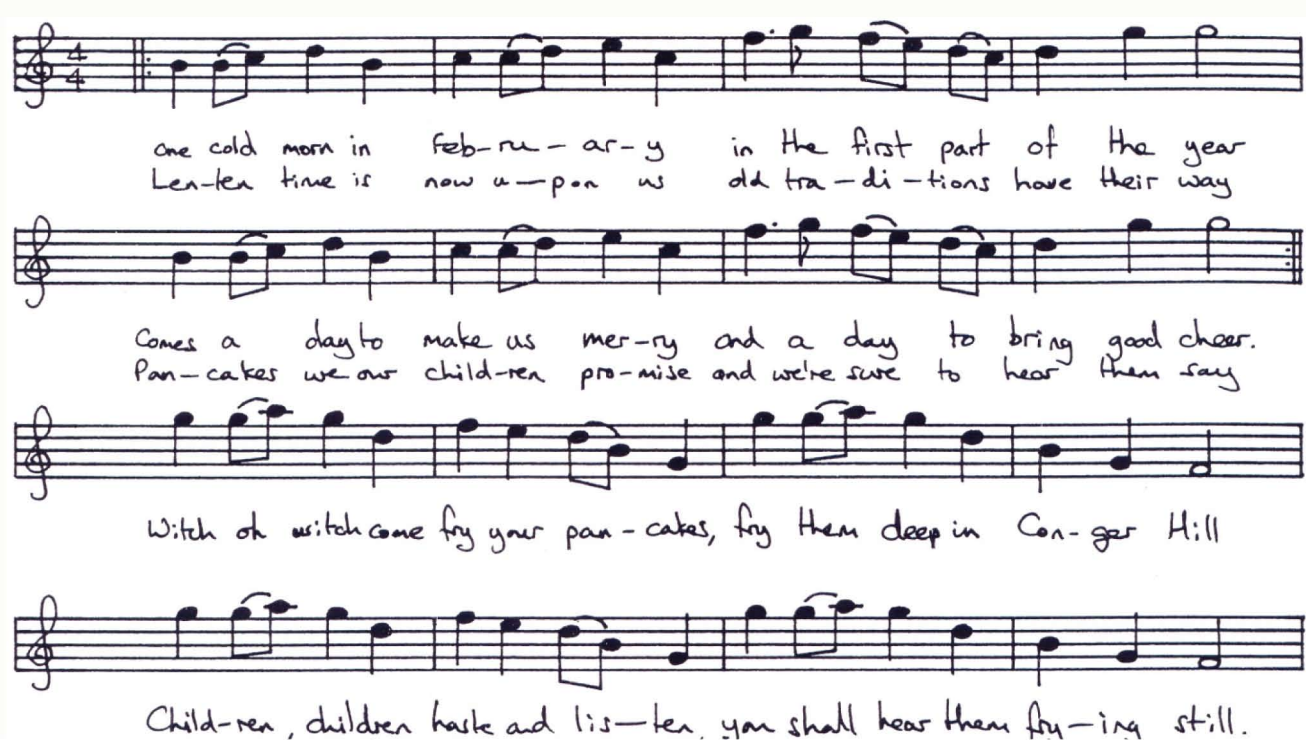 4
4
one cold morn in Feb-ru-ar-y in the first part of the year
Len-ten time is now u-pon us old tra-di-tions have their way
Comes a day to make us mer-ry and a day to bring good cheer.
Pan-cakes we our child-ren pro-mise and we're sure to hear them say
Witch oh witch come fry your pan-cakes, fry them deep in Con-ger Hill
Child-ren, children haste and lis-ten, you shall hear them fry-ing still.